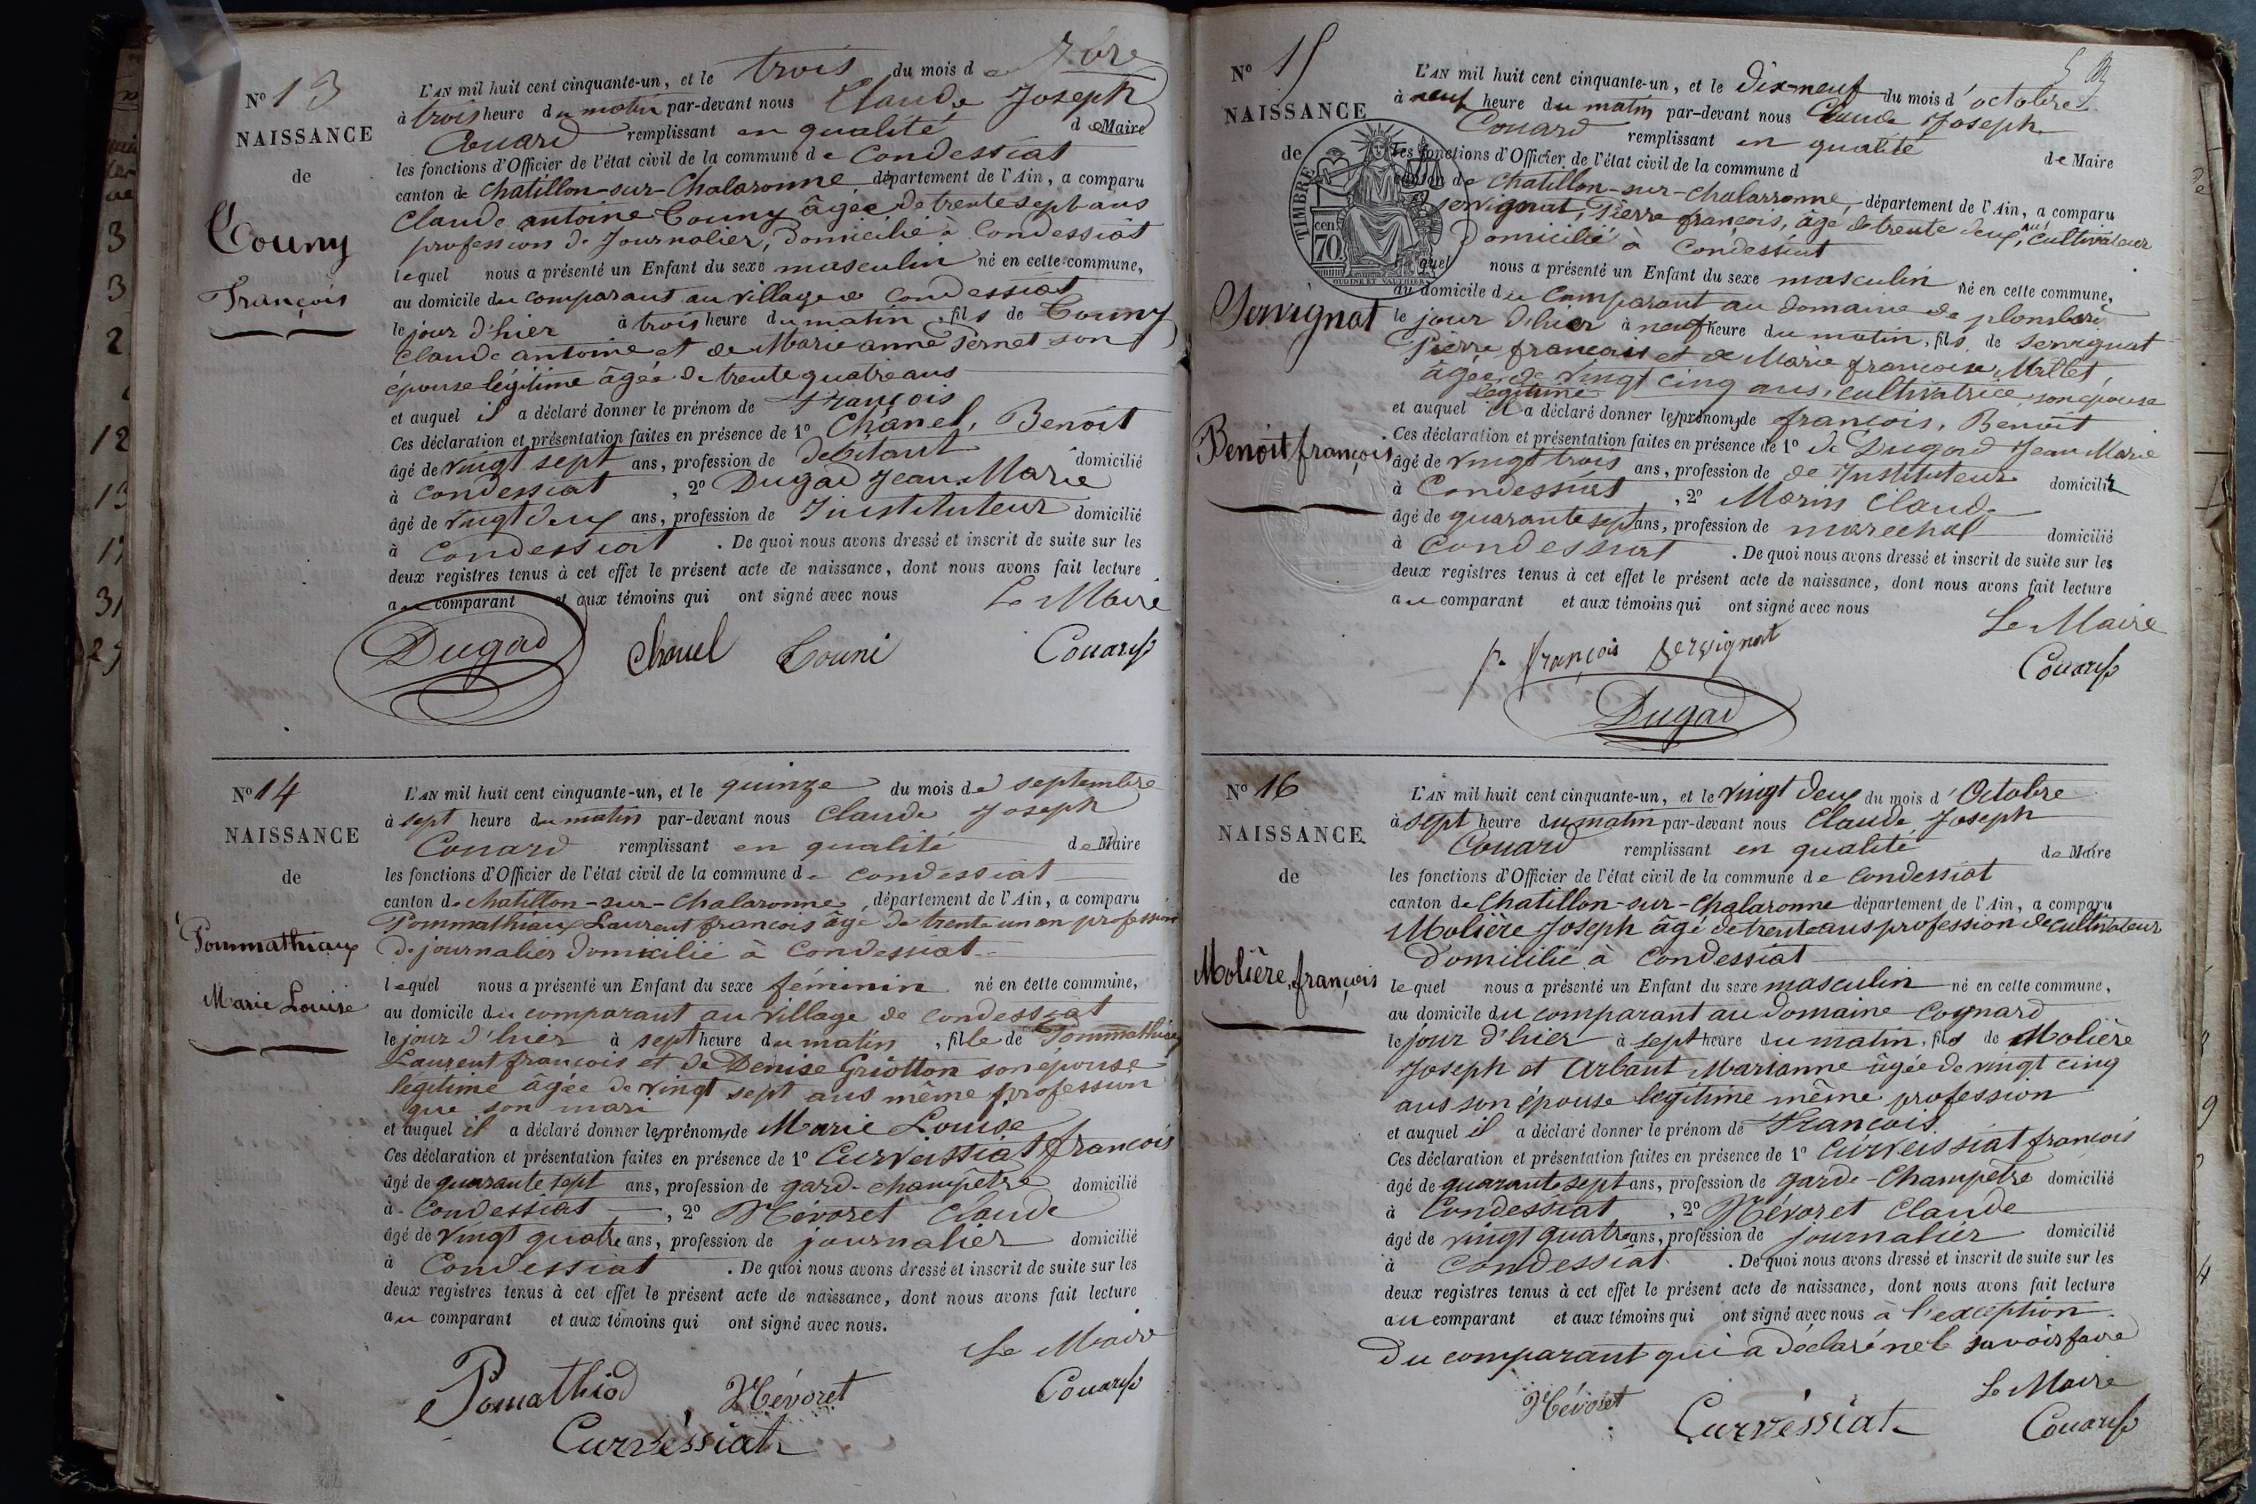 N° 13
NAISSANCE
de
Couny
François
L'AN mil huit cent cinquante-un, et le trois du mois de 7bre
à trois heure du matin par-devant nous Claude Joseph
Couard remplissant en qualité de Maire
les fonctions d'Officier de l'état civil de la commune de Condessiat
canton de Chatillon-sur-Chalaronne, département de l'Ain, a comparu
Claude antoine Couny âgée de trente sept ans
profession de Journalier, domicilié à Condessiat
lequel nous a présenté un Enfant du sexe masculin né en cette commune,
au domicile du comparant au village de Condessiat
le jour d'hier à trois heure du matin, fils de Couny
Claude antoine et de Marie anne Pernet son
épouse légitime âgée de trente quatre ans
et auquel il a déclaré donner le prénom de François
Ces déclaration et présentation faites en présence de 1° Chanel, Benoit
âgé de vingt sept ans, profession de debitant domicilié
à Condessiat, 2° Dugad Jean Marie
âgé de vingt deux ans, profession de Instituteur domicilié
à Condessiat. De quoi nous avons dressé et inscrit de suite sur les
deux registres tenus à cet effet le présent acte de naissance, dont nous avons fait lecture
au comparant et aux témoins qui ont signé avec nous
Le Maire
Dugad Chanel Couni Couard
N° 14
NAISSANCE
de
Pommathiaux
Marie Louise
L'AN mil huit cent cinquante-un, et le quinze du mois de septembre
à sept heure du matin par-devant nous Claude Joseph
Couard remplissant en qualité de Maire
les fonctions d'Officier de l'état civil de la commune de Condessiat
canton de chatillon-sur-Chalaronne, département de l'Ain, a comparu
Pommathiaux Laurent françois âgé de trente un an profession
de journalier domicilié à Condessiat
lequel nous a présenté un Enfant du sexe féminin né en cette commune,
au domicile du comparant au village de condessiat
le jour d'hier à sept heure du matin, fille de Pommathiaux
Laurent françois et de Denise Griotton son épouse
légitime âgée de vingt sept ans même profession
que son mari
et auquel il a déclaré donner les prénoms de Marie Louise
Ces déclaration et présentation faites en présence de 1° Curveissiat françois
âgé de quarante sept ans, profession de gard-champêtre domicilié
à Condessiat, 2° Névoret Claude
âgé de vingt quatre ans, profession de journalier domicilié
à Condessiat. De quoi nous avons dressé et inscrit de suite sur les
deux registres tenus à cet effet le présent acte de naissance, dont nous avons fait lecture
au comparant et aux témoins qui ont signé avec nous.
Le Maire
Pomathiod Névoret Couard
Curvéssiat
N° 15
NAISSANCE
de
TIMBRE
cen.
70
OUDINÉ ET VAUTHIER
Servignat
Benoit françois
L'AN mil huit cent cinquante-un, et le dix-neuf du mois d'octobre
à neuf heure du matin par-devant nous Claude Joseph
Couard remplissant en qualité de Maire
les fonctions d'Officier de l'état civil de la commune d
canton de Chatillon-sur-chalarronne, département de l'Ain, a comparu
Servignat, Pierre françois, âgé de trente deux ans, cultivateur
Domicilié à Condessiat
lequel nous a présenté un Enfant du sexe masculin né en cette commune,
au domicile du Comparant au domaine de
le jour d'hier à neuf heure du matin, fils de Servignat
Pierre françois et de Marie francoise Millet
âgée de vingt cinq ans, cultivatrice son épouse
légitime
et auquel il a déclaré donner les prénoms de françois, Benoit
Ces déclaration et présentation faites en présence de 1° de Dugad Jean Marie
âgé de vingt trois ans, profession de de Instituteur domicilié
à Condessiat, 2° Morin Claude
âgé de quarante sept ans, profession de marechal domicilié
à Condessiat. De quoi nous avons dressé et inscrit de suite sur les
deux registres tenus à cet effet le présent acte de naissance, dont nous avons fait lecture
au comparant et aux témoins qui ont signé avec nous
Le Maire
p. françois Servignat Couard
Dugad
N° 16
NAISSANCE
de
Molière, françois
L'AN mil huit cent cinquante-un, et le vingt deux du mois d'Octobre
à sept heure du matin par-devant nous Claude Joseph
Couard remplissant en qualité de Maire
les fonctions d'Officier de l'état civil de la commune de Condessiat
canton de Chatillon-sur-Chalaronne département de l'Ain, a comparu
Molière Joseph âgé de trente ans profession de cultivateur
domicilié à Condessiat
lequel nous a présenté un Enfant du sexe masculin né en cette commune,
au domicile du comparant au domaine Cognard
le jour d'hier à sept heure du matin, fils de Molière
Joseph et Arbant Marianne âgée de vingt cinq
ans son épouse légitime même profession
et auquel il a déclaré donner le prénom de François
Ces déclaration et présentation faites en présence de 1° Curveissiat françois
âgé de quarante sept ans, profession de garde-Champêtre domicilié
à Condessiat, 2° Névoret Claude
âgé de vingt quatre ans, profession de journalier domicilié
à Condessiat. De quoi nous avons dressé et inscrit de suite sur les
deux registres tenus à cet effet le présent acte de naissance, dont nous avons fait lecture
au comparant et aux témoins qui ont signé avec nous à l'exception
du comparant qui a déclaré ne le savoir faire
Le Maire
Névoret Curvéssiat Couard